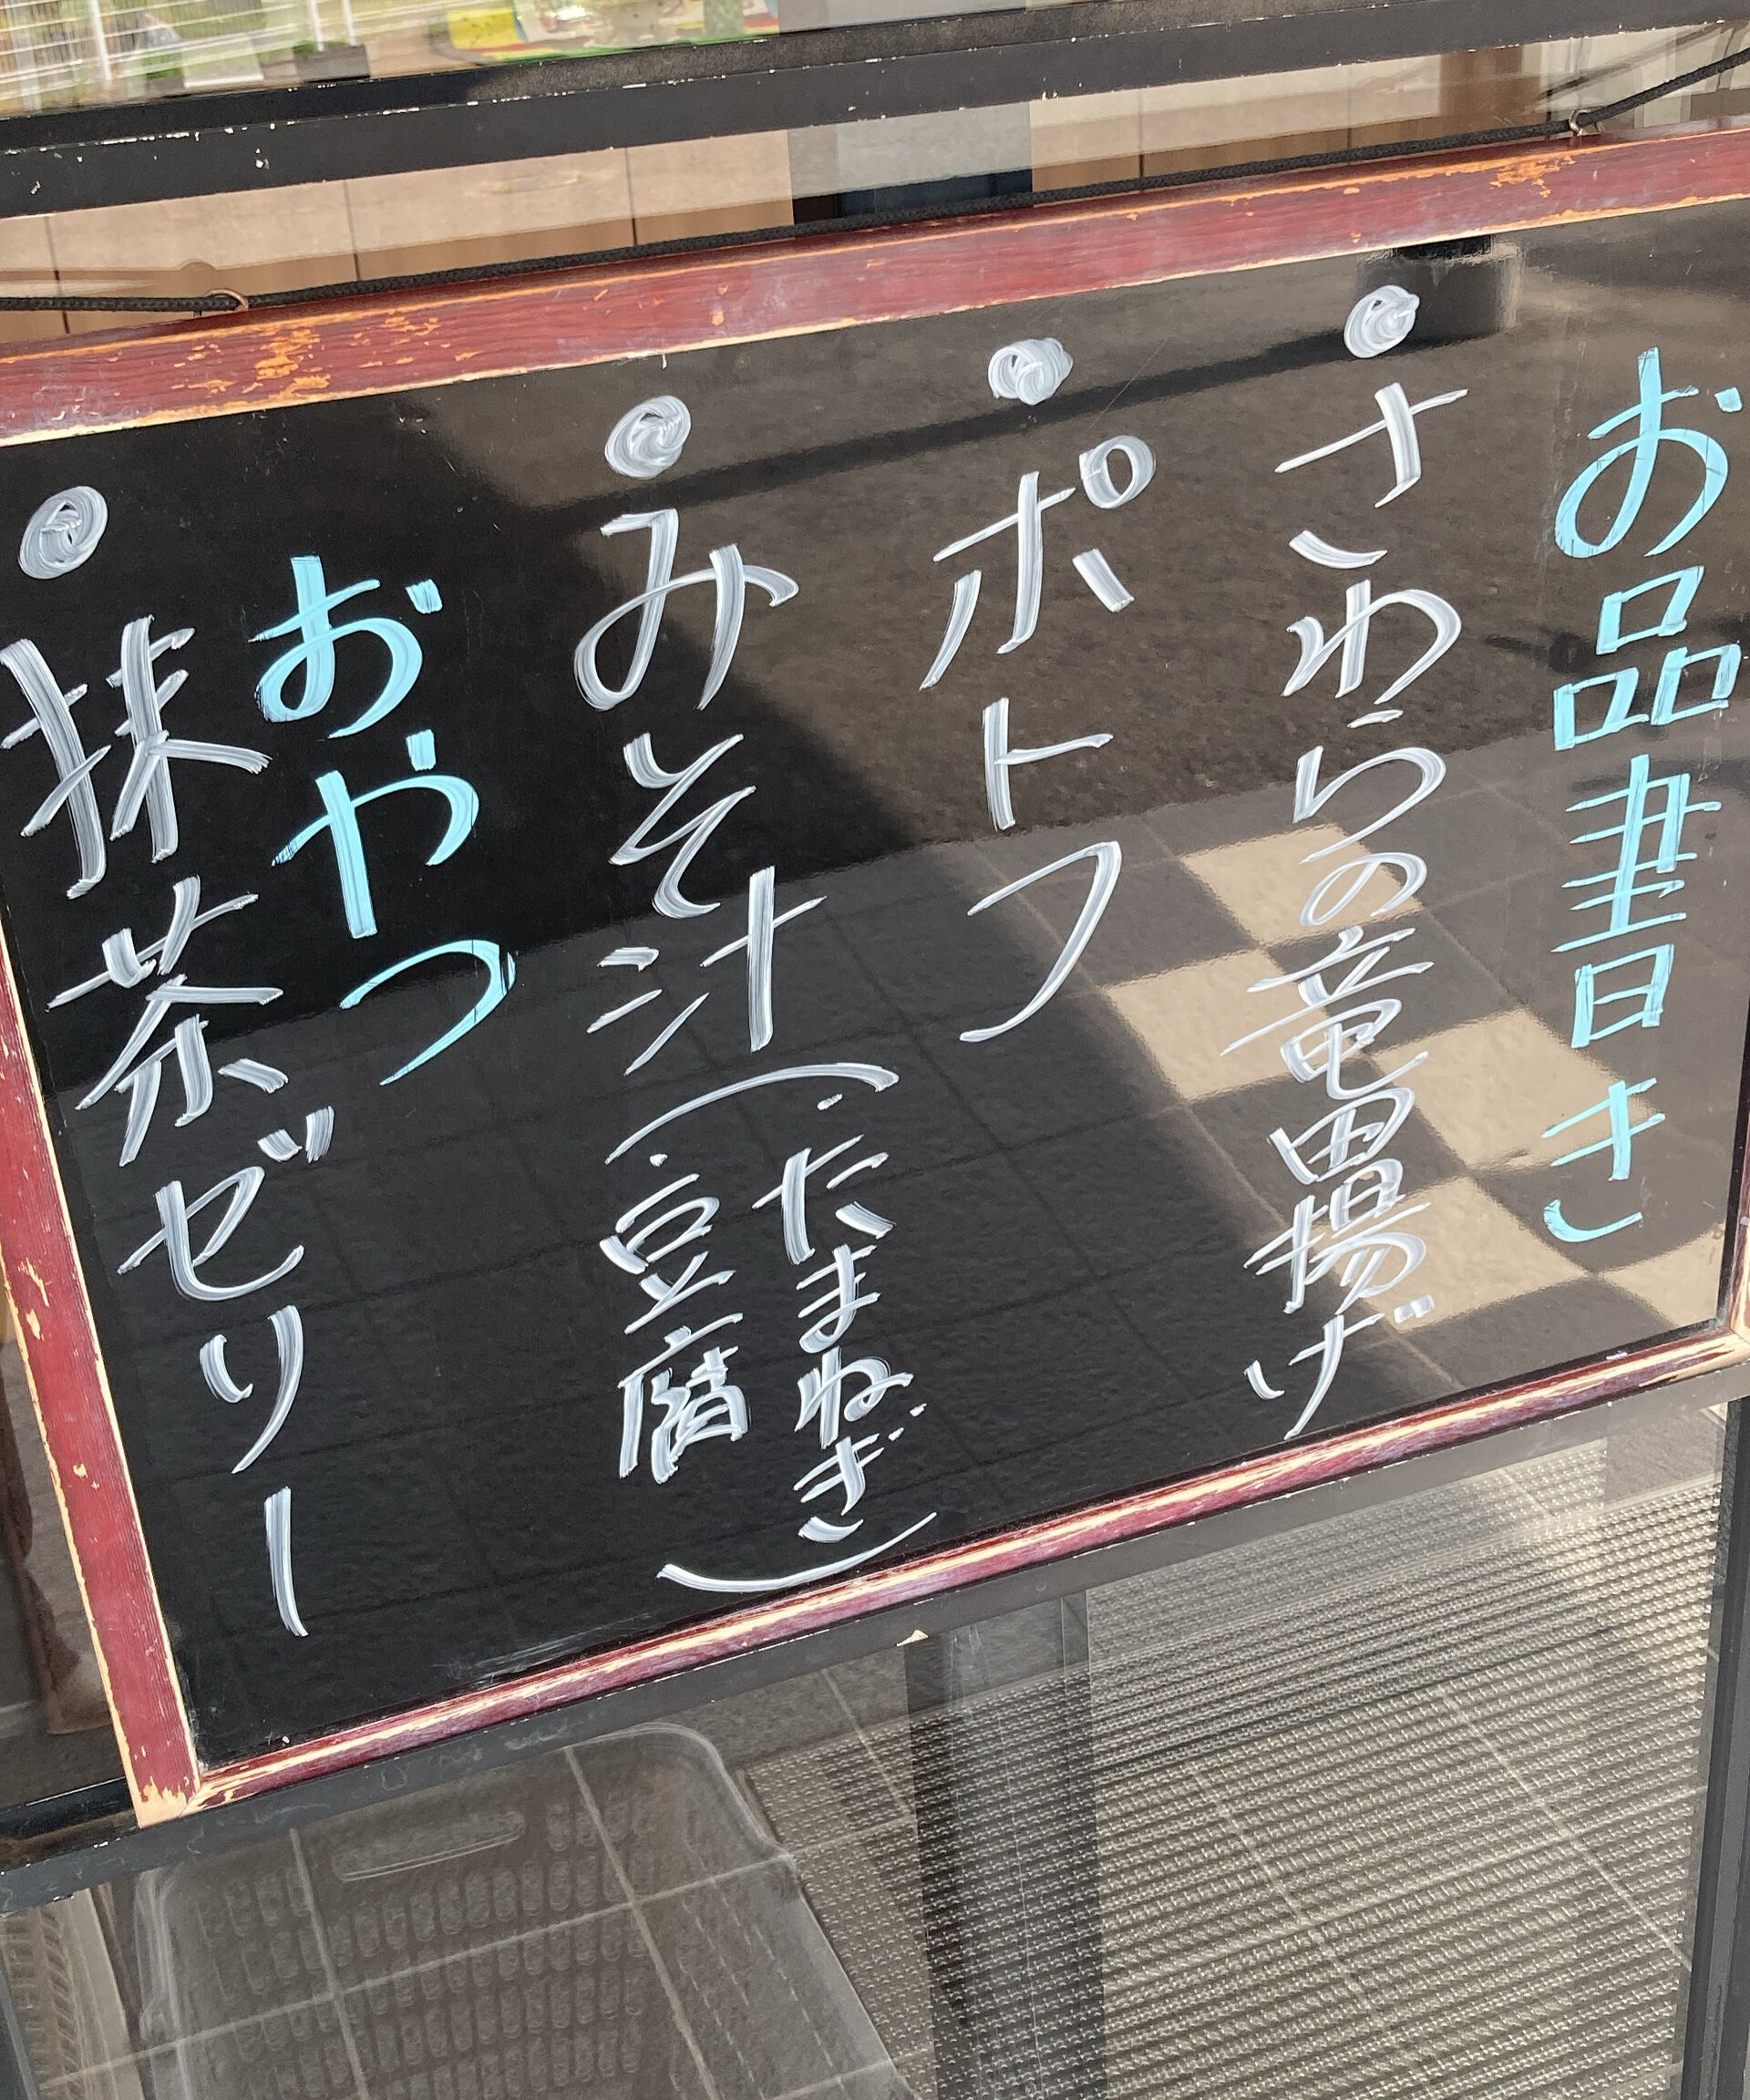 お品書き
●さわらの竜田揚げ
●ポトフ
●みそ汁(たまねぎ
豆腐)
おやつ
●抹茶ゼリー